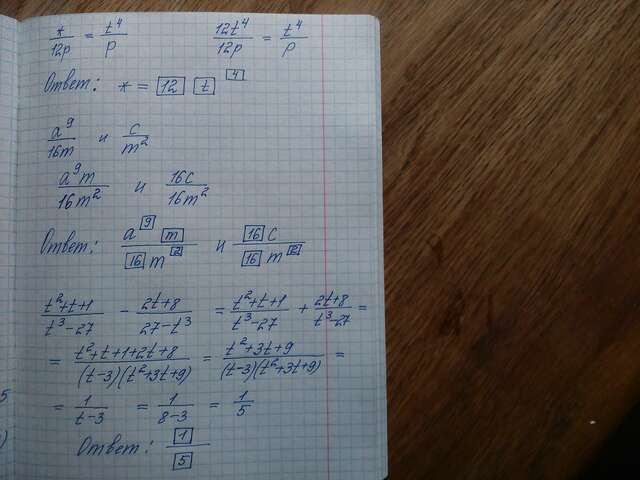 */12p = t⁴/p    12t⁴/12p = t⁴/p
Ответ: * = 12 t ⁴
a⁹/16m и c/m²
a⁹m/16m² и 16c/16m²
Ответ: a⁹m/16m² и 16c/16m²
(t²+t+1)/(t³-27) - (2t+8)/(27-t³) = (t²+t+1)/(t³-27) + (2t+8)/(t³-27) =
= (t²+t+1+2t+8)/((t-3)(t²+3t+9)) = (t²+3t+9)/((t-3)(t²+3t+9)) =
= 1/(t-3) = 1/(8-3) = 1/5
Ответ: 1/5
5
)